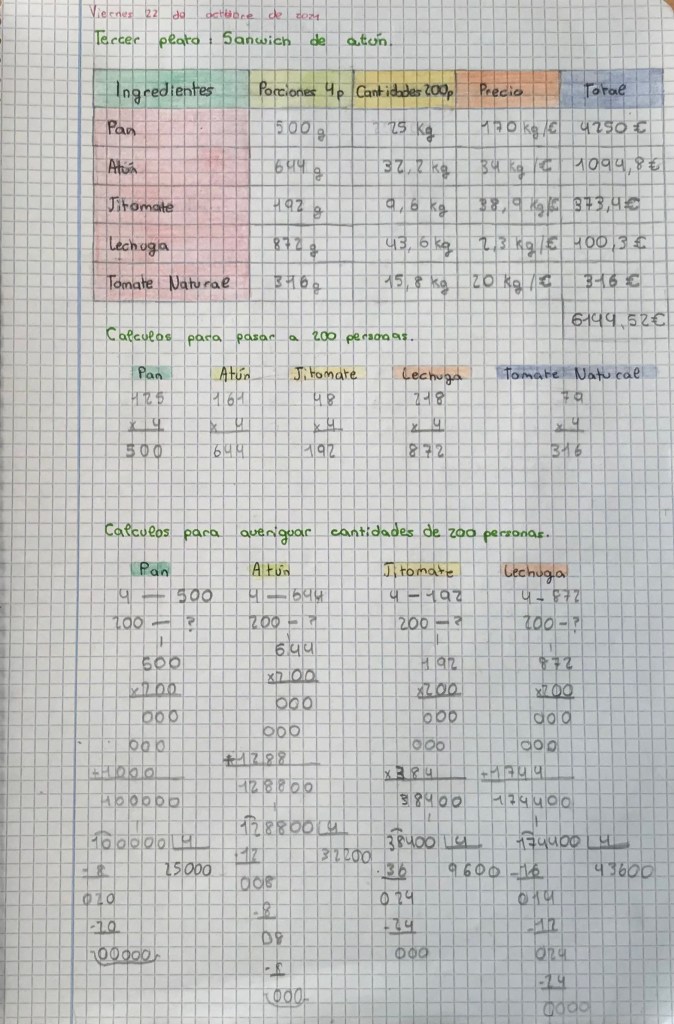 Viernes 22 de octubre de 2021
Tercer plato: Sanwich de atún.
Ingredientes Porciones 4p Cantidades 200p Precio Total
Pan 500g 25 kg 170 kg/€ 4250 €
Atún 644 g 32,2 kg 34 kg/€ 1094,8€
Jitomate 192 g 9,6 kg 38,9 kg/€ 373,4€
Lechuga 872 g 43,6 kg 2,3 kg/€ 100,3 €
Tomate Natural 316g 15,8 kg 20 kg/€ 316 €
6144,52€
Calculos para pasar a 200 personas.
Pan Atún Jitomate Lechuga Tomate Natural
125 161 48 218 79
x 4 x 4 x 4 x 4 x 4
500 644 192 872 316
Calculos para averiguar cantidades de 200 personas.
Pan Atún Jitomate Lechuga
4 — 500 4 — 644 4 — 192 4 - 872
200 — ? 200 - ? 200 — ? 200 - ?
500 644 192 872
x200 x200 x200 x200
000 000 000 000
000 000 000 000
+1000 +1288 x384 +1744
100000 128800 38400 174400
100000 4 128800 4 38400 4 174400 4
-8 25000 -12 32200 -36 9600 -16 43600
020 008 024 014
-20 -8 -24 -12
00000 08 000 024
-8 -24
000 0000